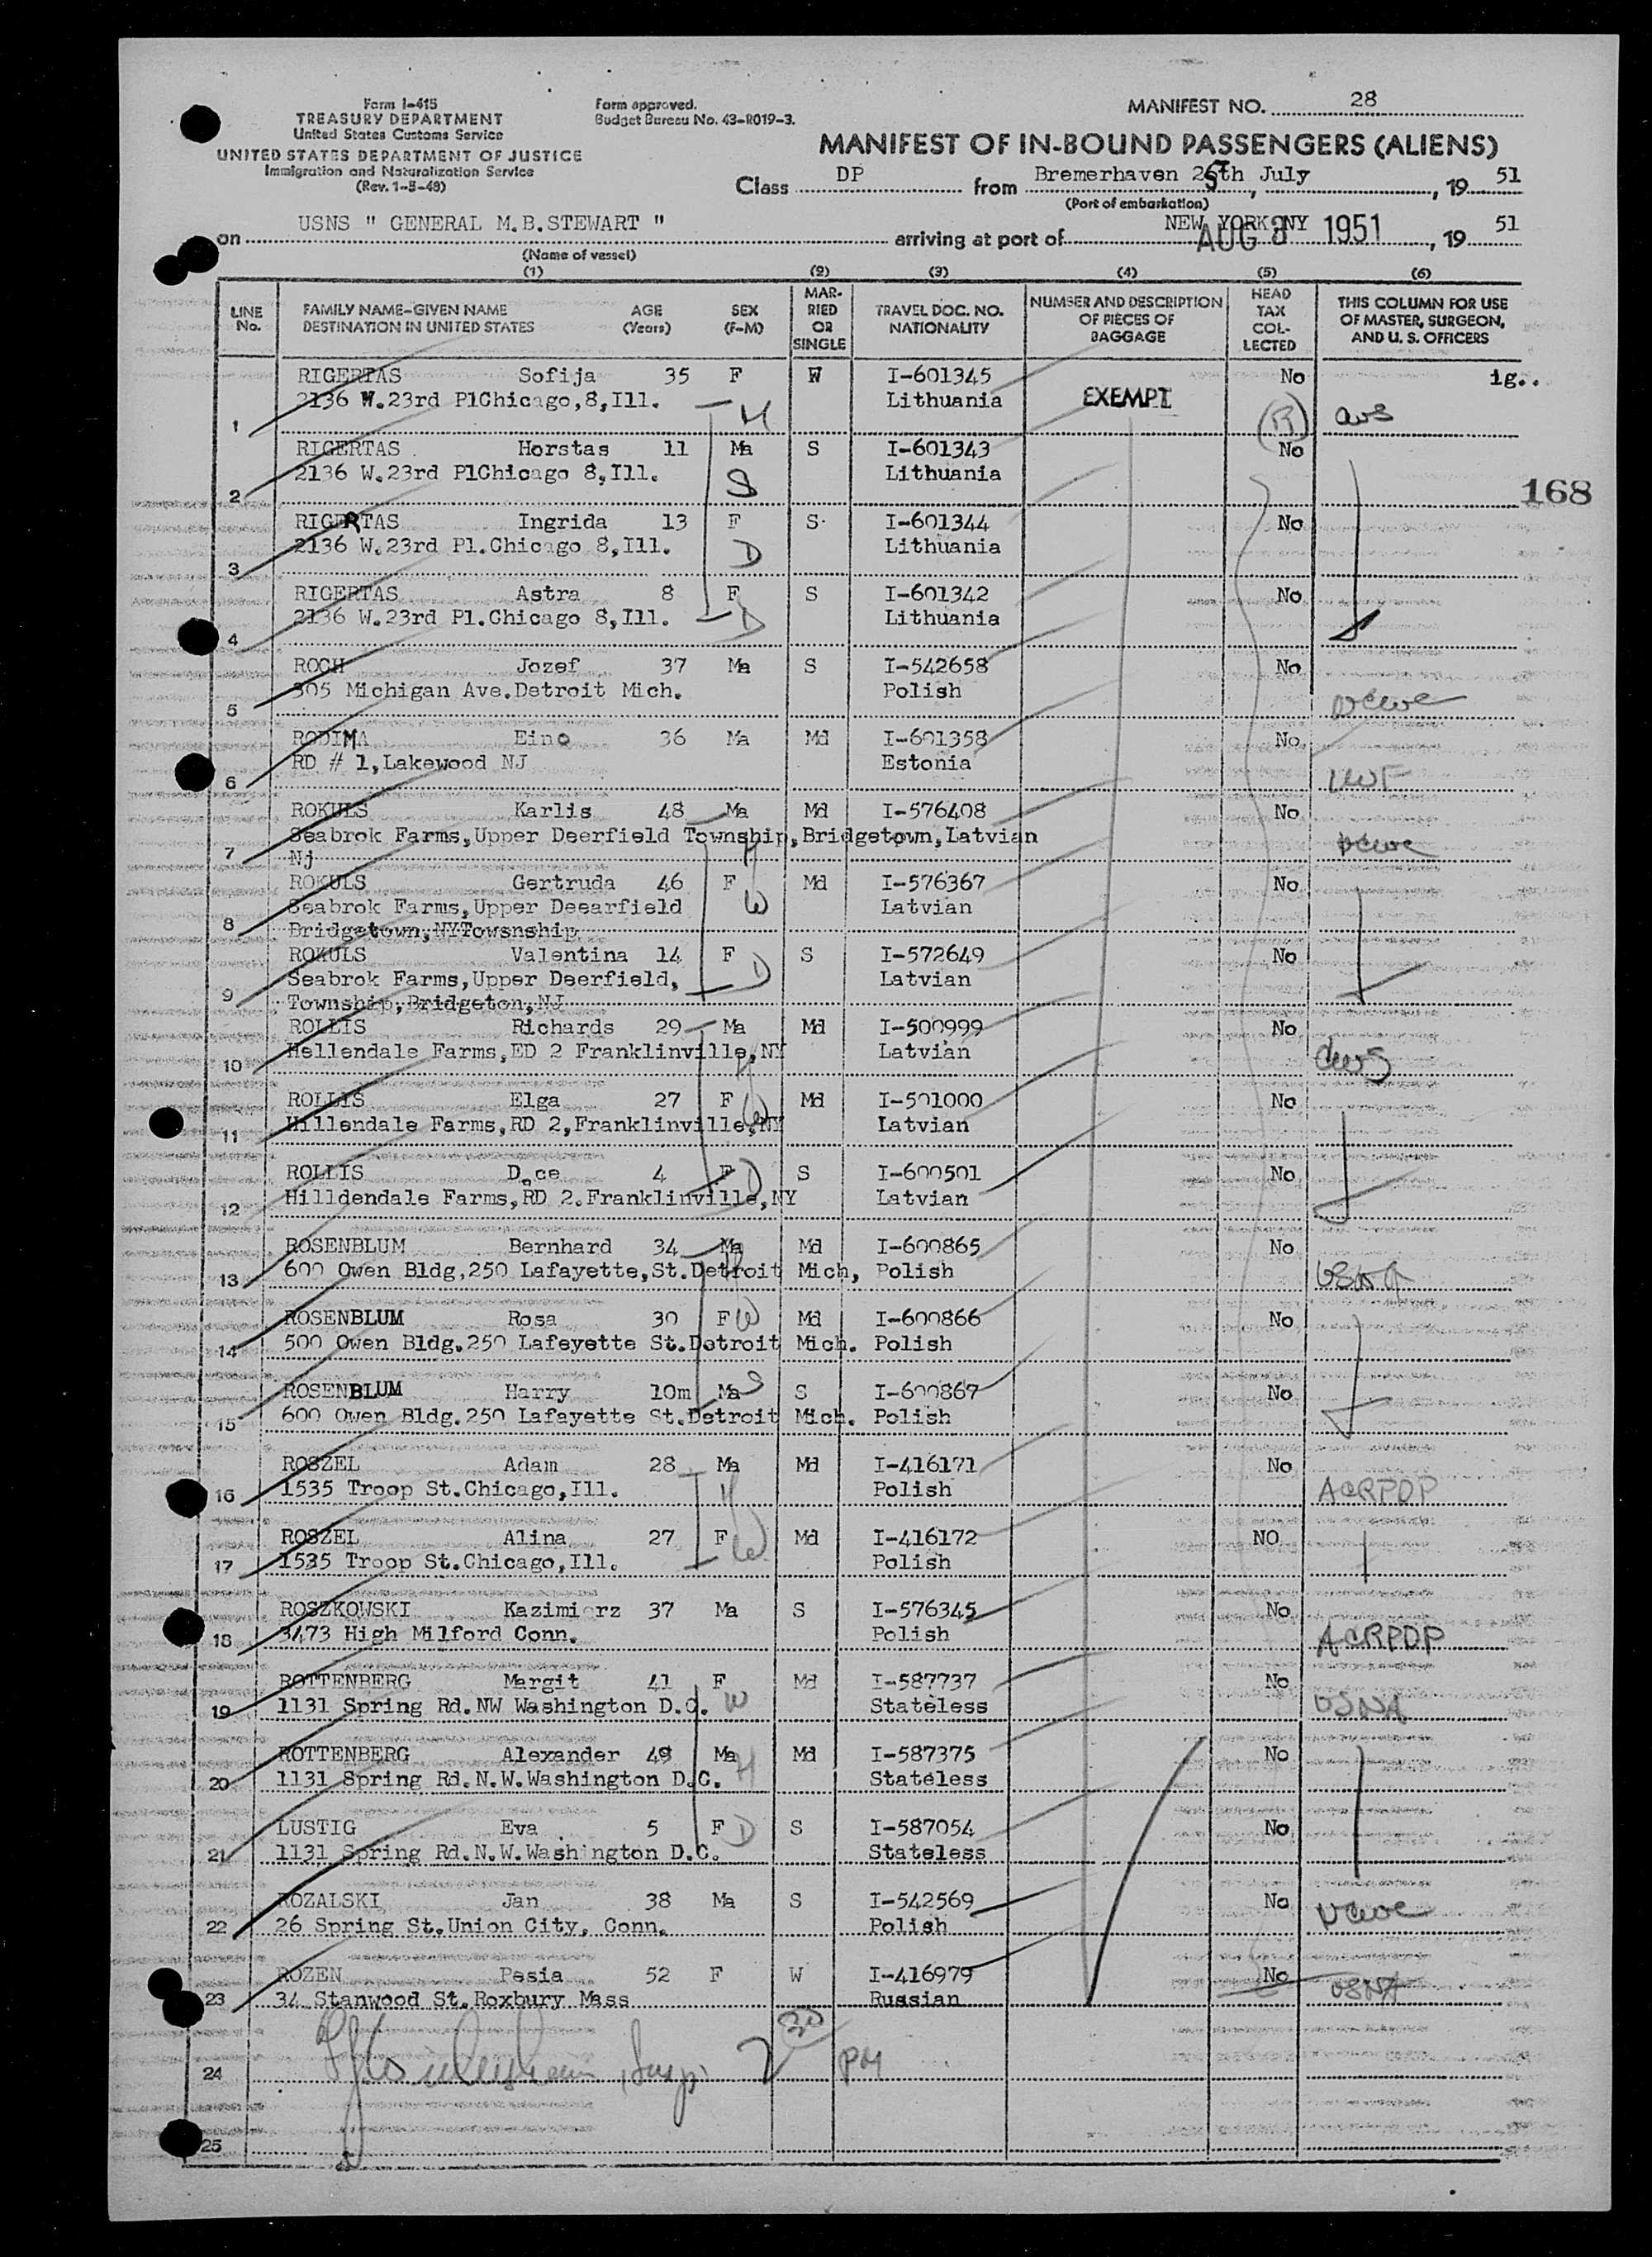 Form I-415
TREASURY DEPARTMENT
United States Customs Service
UNITED STATES DEPARTMENT OF JUSTICE
Immigration and Naturalization Service
(Rev. 1-5-48)
Form approved.
Budget Bureau No. 43-R019-3.
MANIFEST NO. 28
MANIFEST OF IN-BOUND PASSENGERS (ALIENS)
Class DP from Bremerhaven 25th July, 19 51
(Port of embarkation)
on USNS " GENERAL M.B.STEWART " arriving at port of NEW YORK NY, 19 51
AUG 3 1951
(Name of vessel)
(1) (2) (3) (4) (5) (6)
LINE No. FAMILY NAME-GIVEN NAME DESTINATION IN UNITED STATES AGE (Years) SEX (F-M) MARRIED OR SINGLE TRAVEL DOC. NO. NATIONALITY NUMBER AND DESCRIPTION OF PIECES OF BAGGAGE HEAD TAX COLLECTED THIS COLUMN FOR USE OF MASTER, SURGEON, AND U. S. OFFICERS
RIGERTAS Sofija 35 F W I-601345 No ig..
1 2136 W.23rd PlChicago,8,Ill. H Lithuania EXEMPT (R)
RIGERTAS Horstas 11 Ma S I-601343 No
2 2136 W.23rd PlChicago 8,Ill. S Lithuania
168
RIGERTAS Ingrida 13 F S I-601344 No
3 2136 W.23rd Pl.Chicago 8,Ill. D Lithuania
RIGERTAS Astra 8 F S I-601342 No
4 2136 W.23rd Pl.Chicago 8,Ill. D Lithuania
ROCH Jozef 37 Ma S I-542658 No
5 305 Michigan Ave.Detroit Mich. Polish ncwc
RODIMA Eino 36 Ma Md I-601358 No
6 RD # 1,Lakewood NJ Estonia LWF
ROKULS Karlis 48 Ma Md I-576408 No
7 Seabrok Farms,Upper Deerfield Township,Bridgetown,Latvian ncwc
Nj
ROKULS Gertruda 46 F Md I-576367 No
8 Seabrok Farms,Upper Deearfield W Latvian
Bridgetown,NYTowsnship
ROKULS Valentina 14 F S I-572649 No
9 Seabrok Farms,Upper Deerfield, D Latvian
Township,Bridgeton,NJ
ROLLIS Richards 29 Ma Md I-500999 No
10 Hellendale Farms,ED 2 Franklinville,NY Latvian cws
ROLLIS Elga 27 F W Md I-501000 No
11 Hillendale Farms,RD 2,Franklinville,NY Latvian
ROLLIS D ce 4 F D S I-600501 No
12 Hilldendale Farms,RD 2.Franklinville,NY Latvian
ROSENBLUM Bernhard 34 Ma H Md I-600865 No
13 600 Owen Bldg,250 Lafayette,St.Detroit Mich, Polish USNA
ROSENBLUM Rosa 30 F W Md I-600866 No
14 500 Owen Bldg.250 Lafeyette St.Detroit Mich. Polish
ROSENBLUM Harry 10m Ma S S I-600867 No
15 600 Owen Bldg.250 Lafayette St.Detroit Mich. Polish
ROSZEL Adam 28 Ma Md I-416171 No
16 1535 Troop St.Chicago,Ill. H Polish ACRPDP
ROSZEL Alina 27 F Md I-416172 NO
17 1535 Troop St.Chicago,Ill. W Polish
ROSZKOWSKI Kazimierz 37 Ma S I-576345 No
18 3473 High Milford Conn. Polish ACRPDP
ROTTENBERG Margit 41 F Md I-587737 No
19 1131 Spring Rd.NW Washington D.C. W Stateless USNA
ROTTENBERG Alexander 49 Ma Md I-587375 No
20 1131 Spring Rd.N.W.Washington D.C. H Stateless
LUSTIG Eva 5 F D S I-587054 No
21 1131 Spring Rd.N.W.Washington D.C. Stateless
ROZALSKI Jan 38 Ma S I-542569 No
22 26 Spring St.Union City, Conn. Polish ncwc
ROZEN Pesia 52 F W I-416979 No
23 34 Stanwood St.Roxbury Mass Russian USNA
24 2 30 PM
25